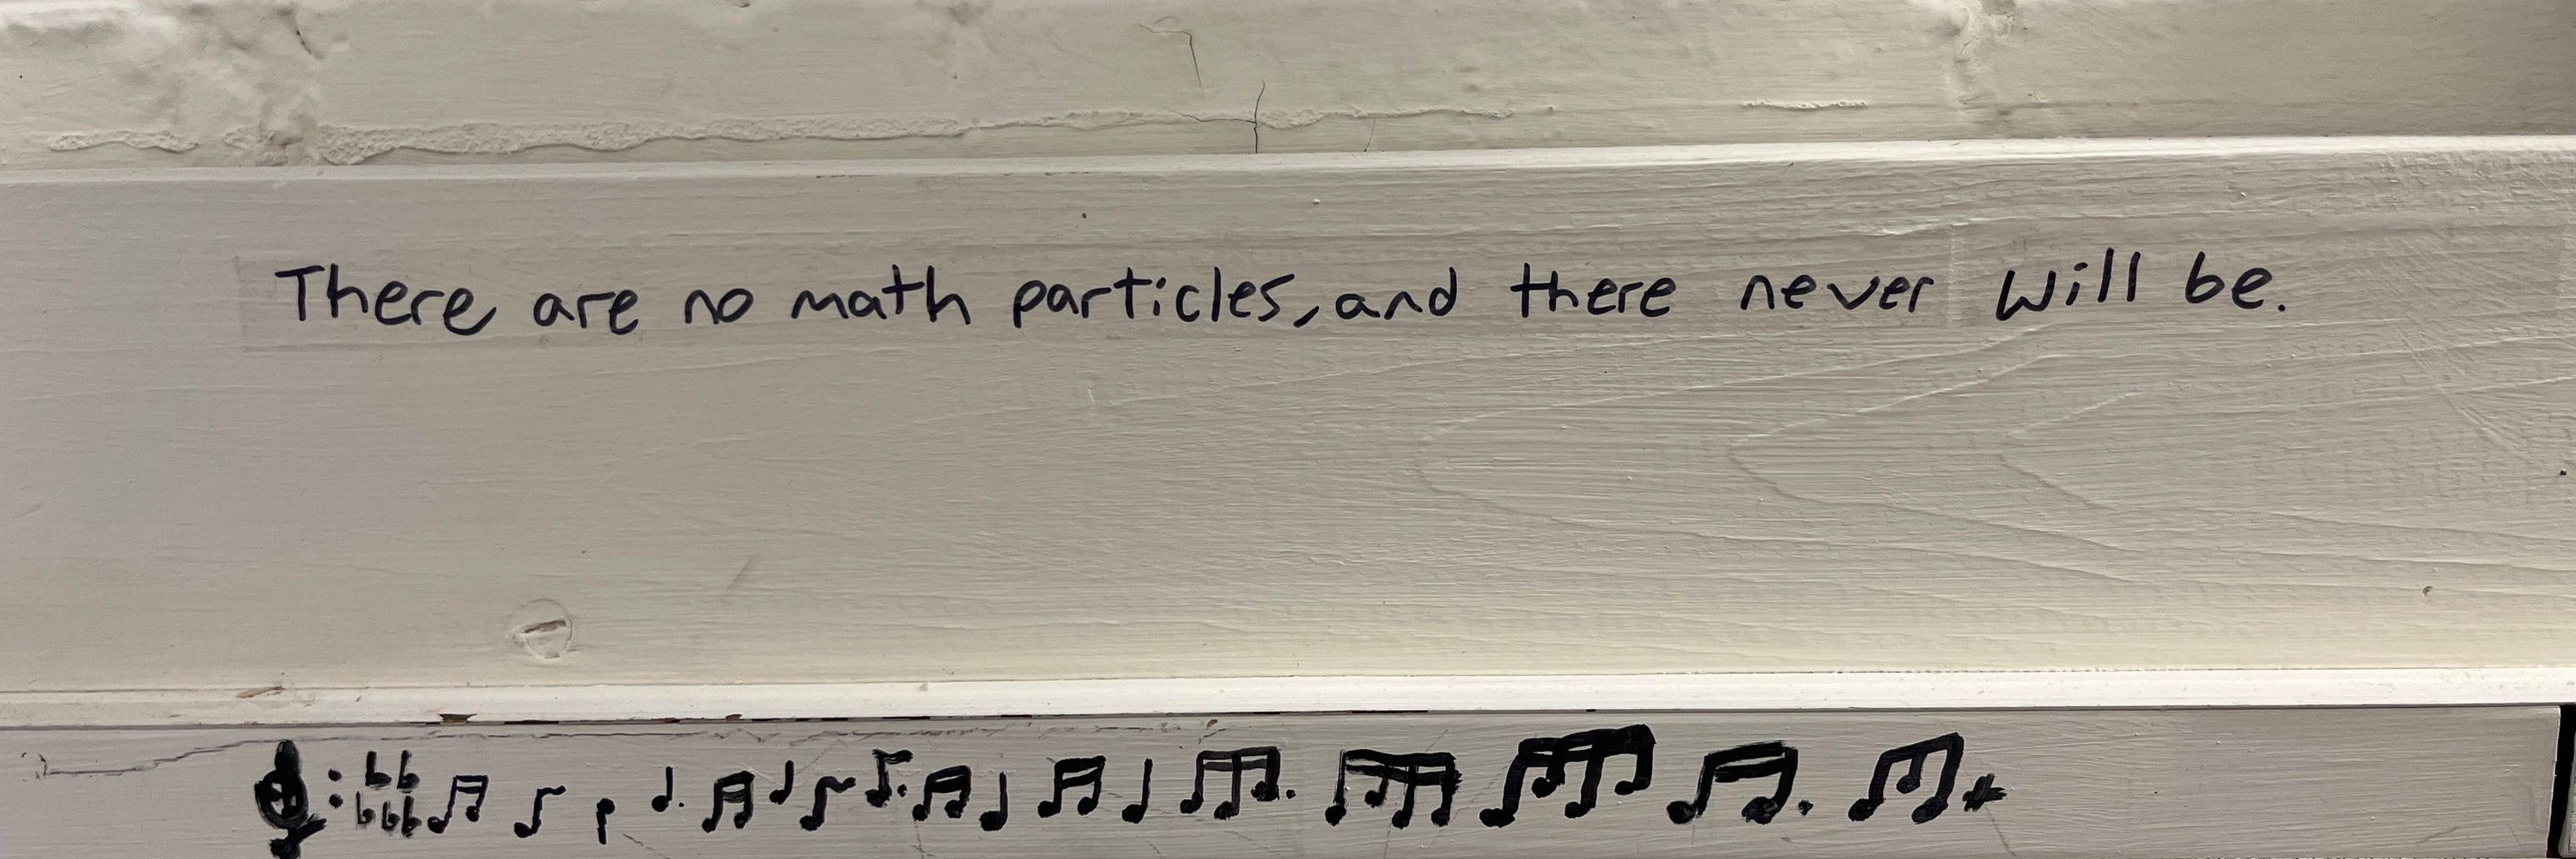 There are no math particles, and there never will be.